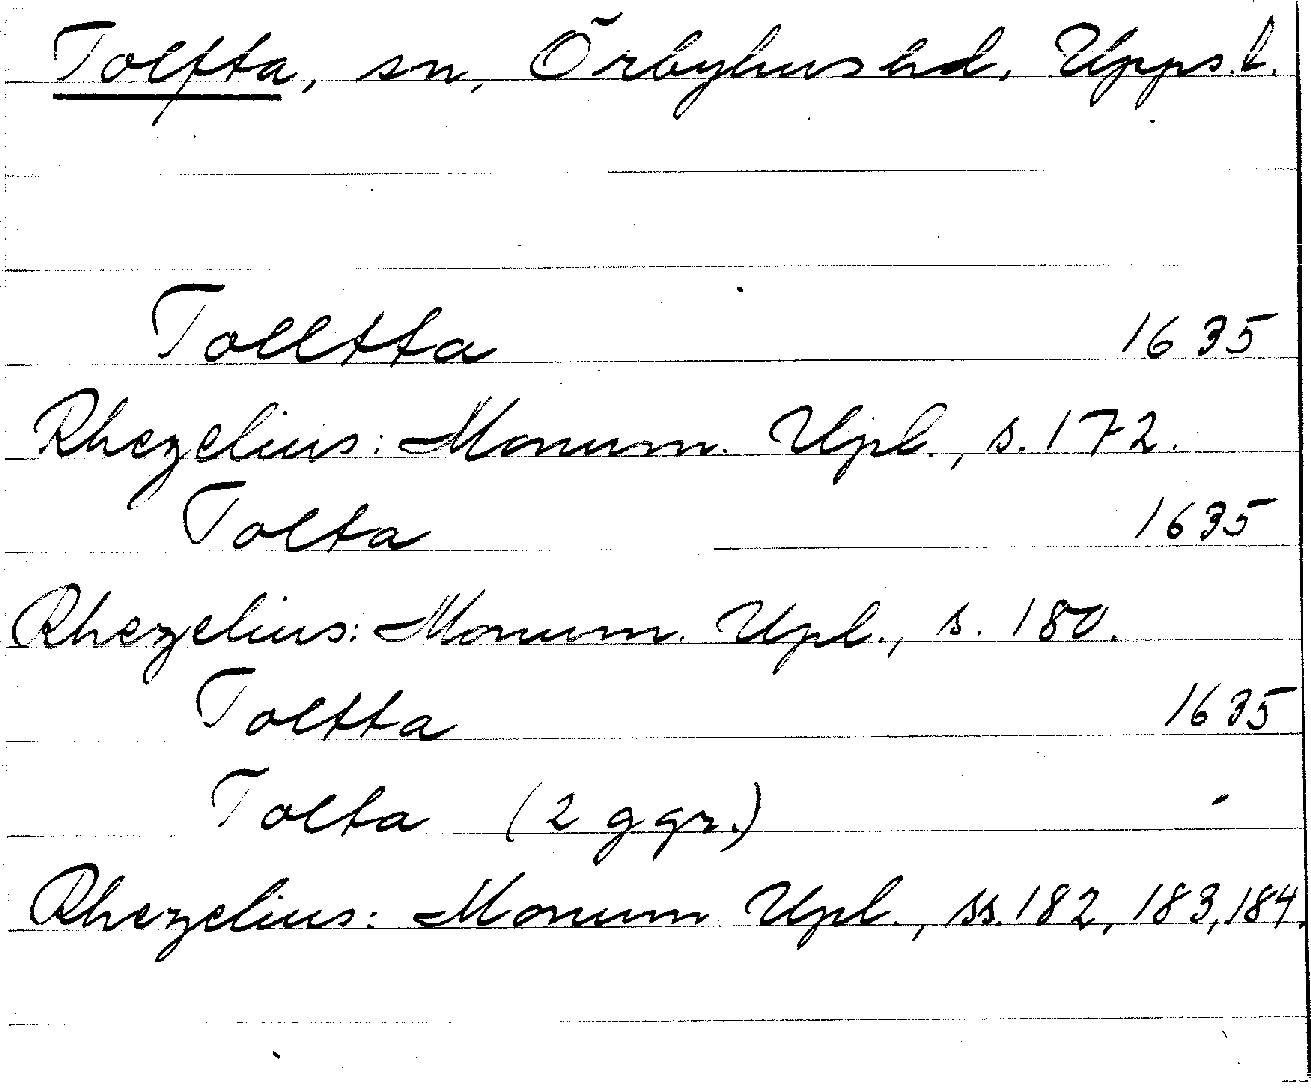 Tolfta, sn, Örbyhus hd, Upps. l.
Tolltta 1635
Rhezelius: Monum. Upl., s. 172.
Tolta 1635
Rhezelius: Monum. Upl., s. 180.
Toltta 1635
Tolta (2 ggr.) -
Rhezelius: Monum Upl., ss. 182, 183, 184.